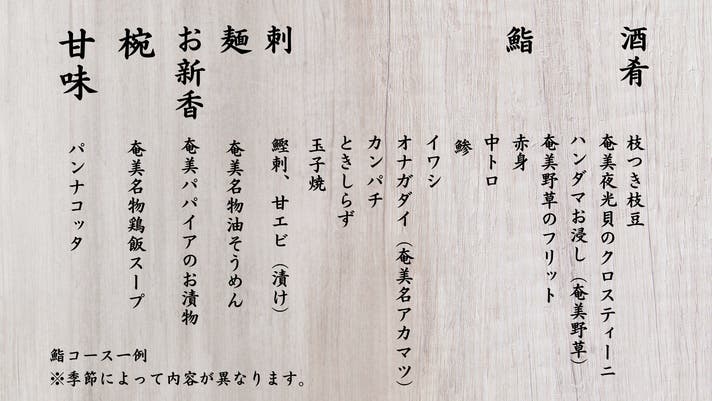 酒肴
枝つき枝豆
奄美夜光貝のクロスティーニ
ハンダマお浸し（奄美野草）
奄美野草のフリット
鮨
赤身
中トロ
鯵
イワシ
オナガダイ（奄美名アカマツ）
カンパチ
ときしらず
玉子焼
刺
鰹刺、甘エビ（漬け）
麺
奄美名物油そうめん
お新香
奄美パパイアのお漬物
椀
奄美名物鶏飯スープ
甘味
パンナコッタ
鮨コース一例
※季節によって内容が異なります。